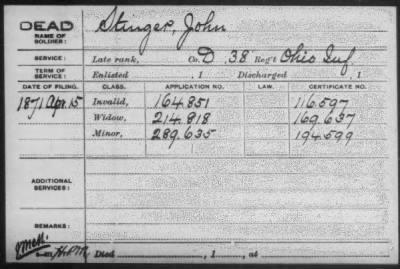 DEAD
NAME OF SOLDIER: Stinger, John
SERVICE: Late rank, Co. D. 38 Reg't Ohio Inf.
TERM OF SERVICE: Enlisted , 1 Discharged , 1
DATE OF FILING. CLASS. APPLICATION NO. LAW. CERTIFICATE NO.
1871 Apr. 15 Invalid, 164.851 116.597
Widow, 214.818 169.637
Minor, 289.635 194.599
ADDITIONAL SERVICES:
REMARKS:
Died , 1 , at